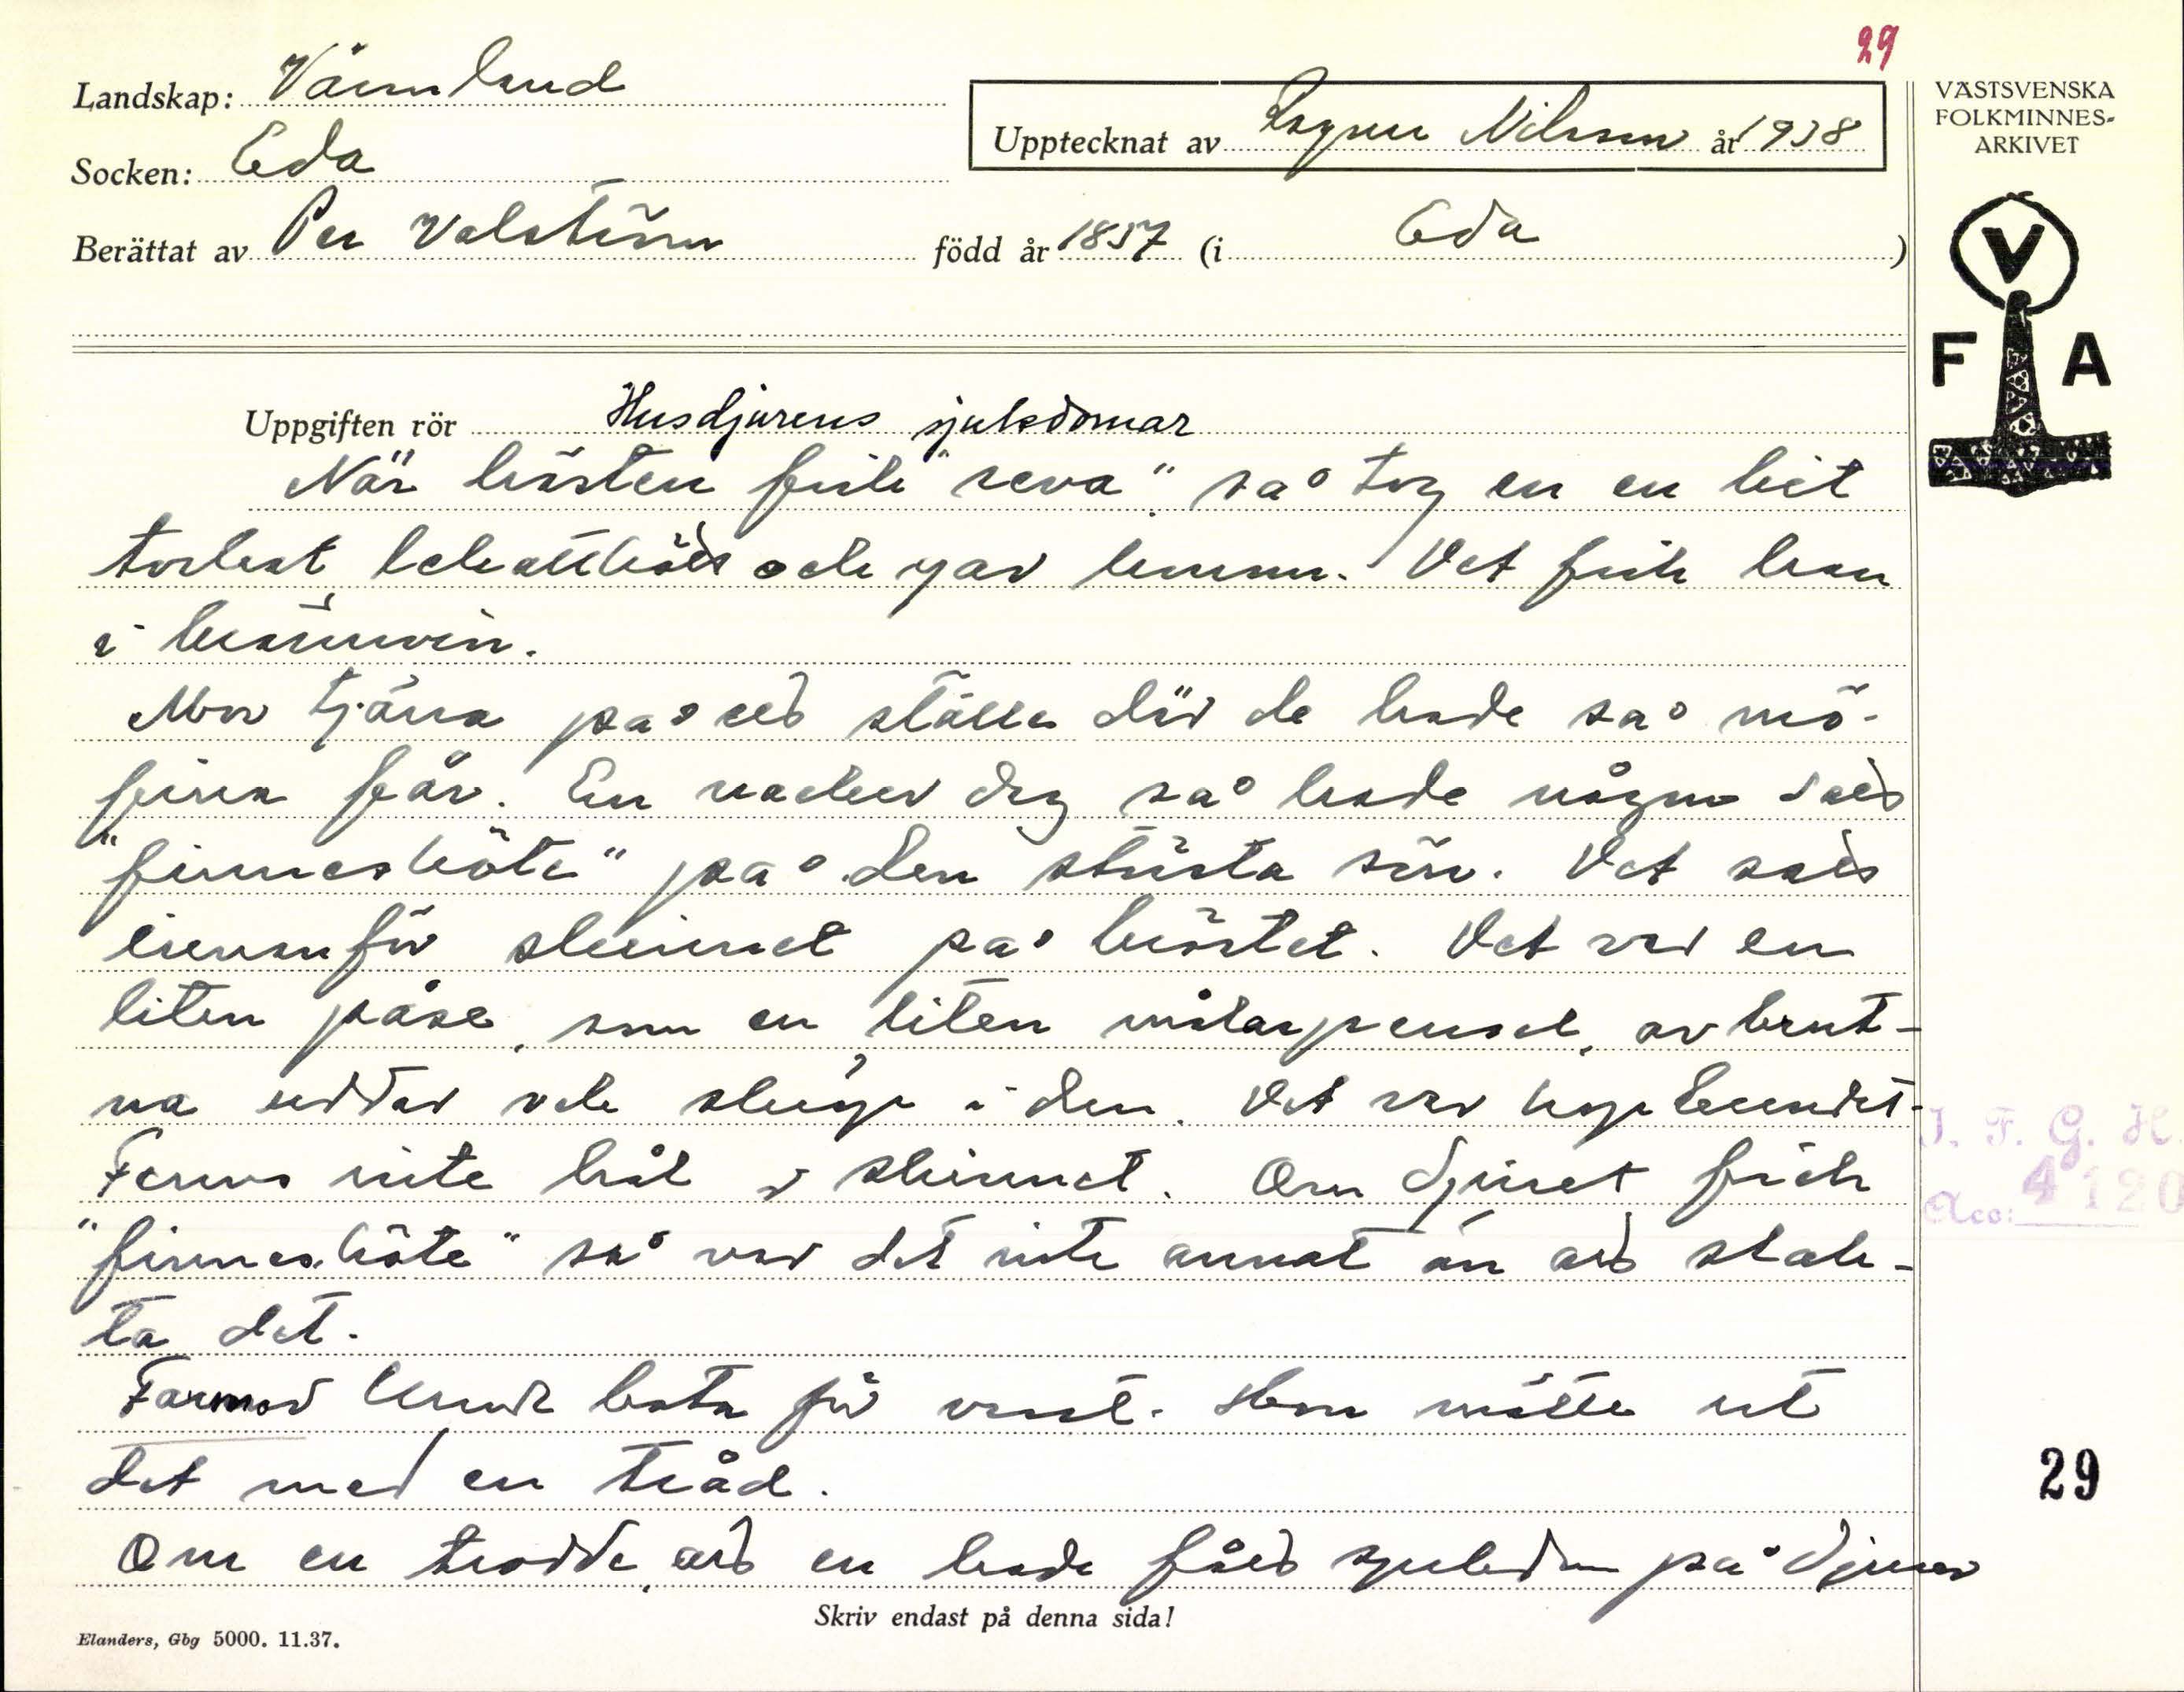 29
Landskap: Värmland
Upptecknat av Ragnar Nilsson år 1938
Socken: Eda
Berättat av Per Valström född år 1857 (i Eda )
VÄSTSVENSKA
FOLKMINNES-
ARKIVET
V
F A
Uppgiften rör Husdjurens sjukdomar
När hästen fick "reva" så tog en en bit
torkat och gav honom. Det fick han
i brännvin.
Mor tjäna på ett ställe där de hade så
fina får. En vacker dag så hade någon satt
"finneskôte" på den största sön. Det satt
innanför skinnet på bröstet. Det var en
liten påse, som en liten målarpensel, avbrut-
na uddar och skräp i den. Det var hopbundet.
Fanns inte hål i skinnet. Om djuret fick
"finneskôte" så var det inte annat än att slak-
ta det.
Farmor kunde bota för vred. Hon mätte ut
det med en tråd.
Om en trodde att en hade fått sjukdom på djuren
Skriv endast på denna sida!
Elanders, Gbg 5000. 11.37.
I. F. G. H.
Acc: 4120
29